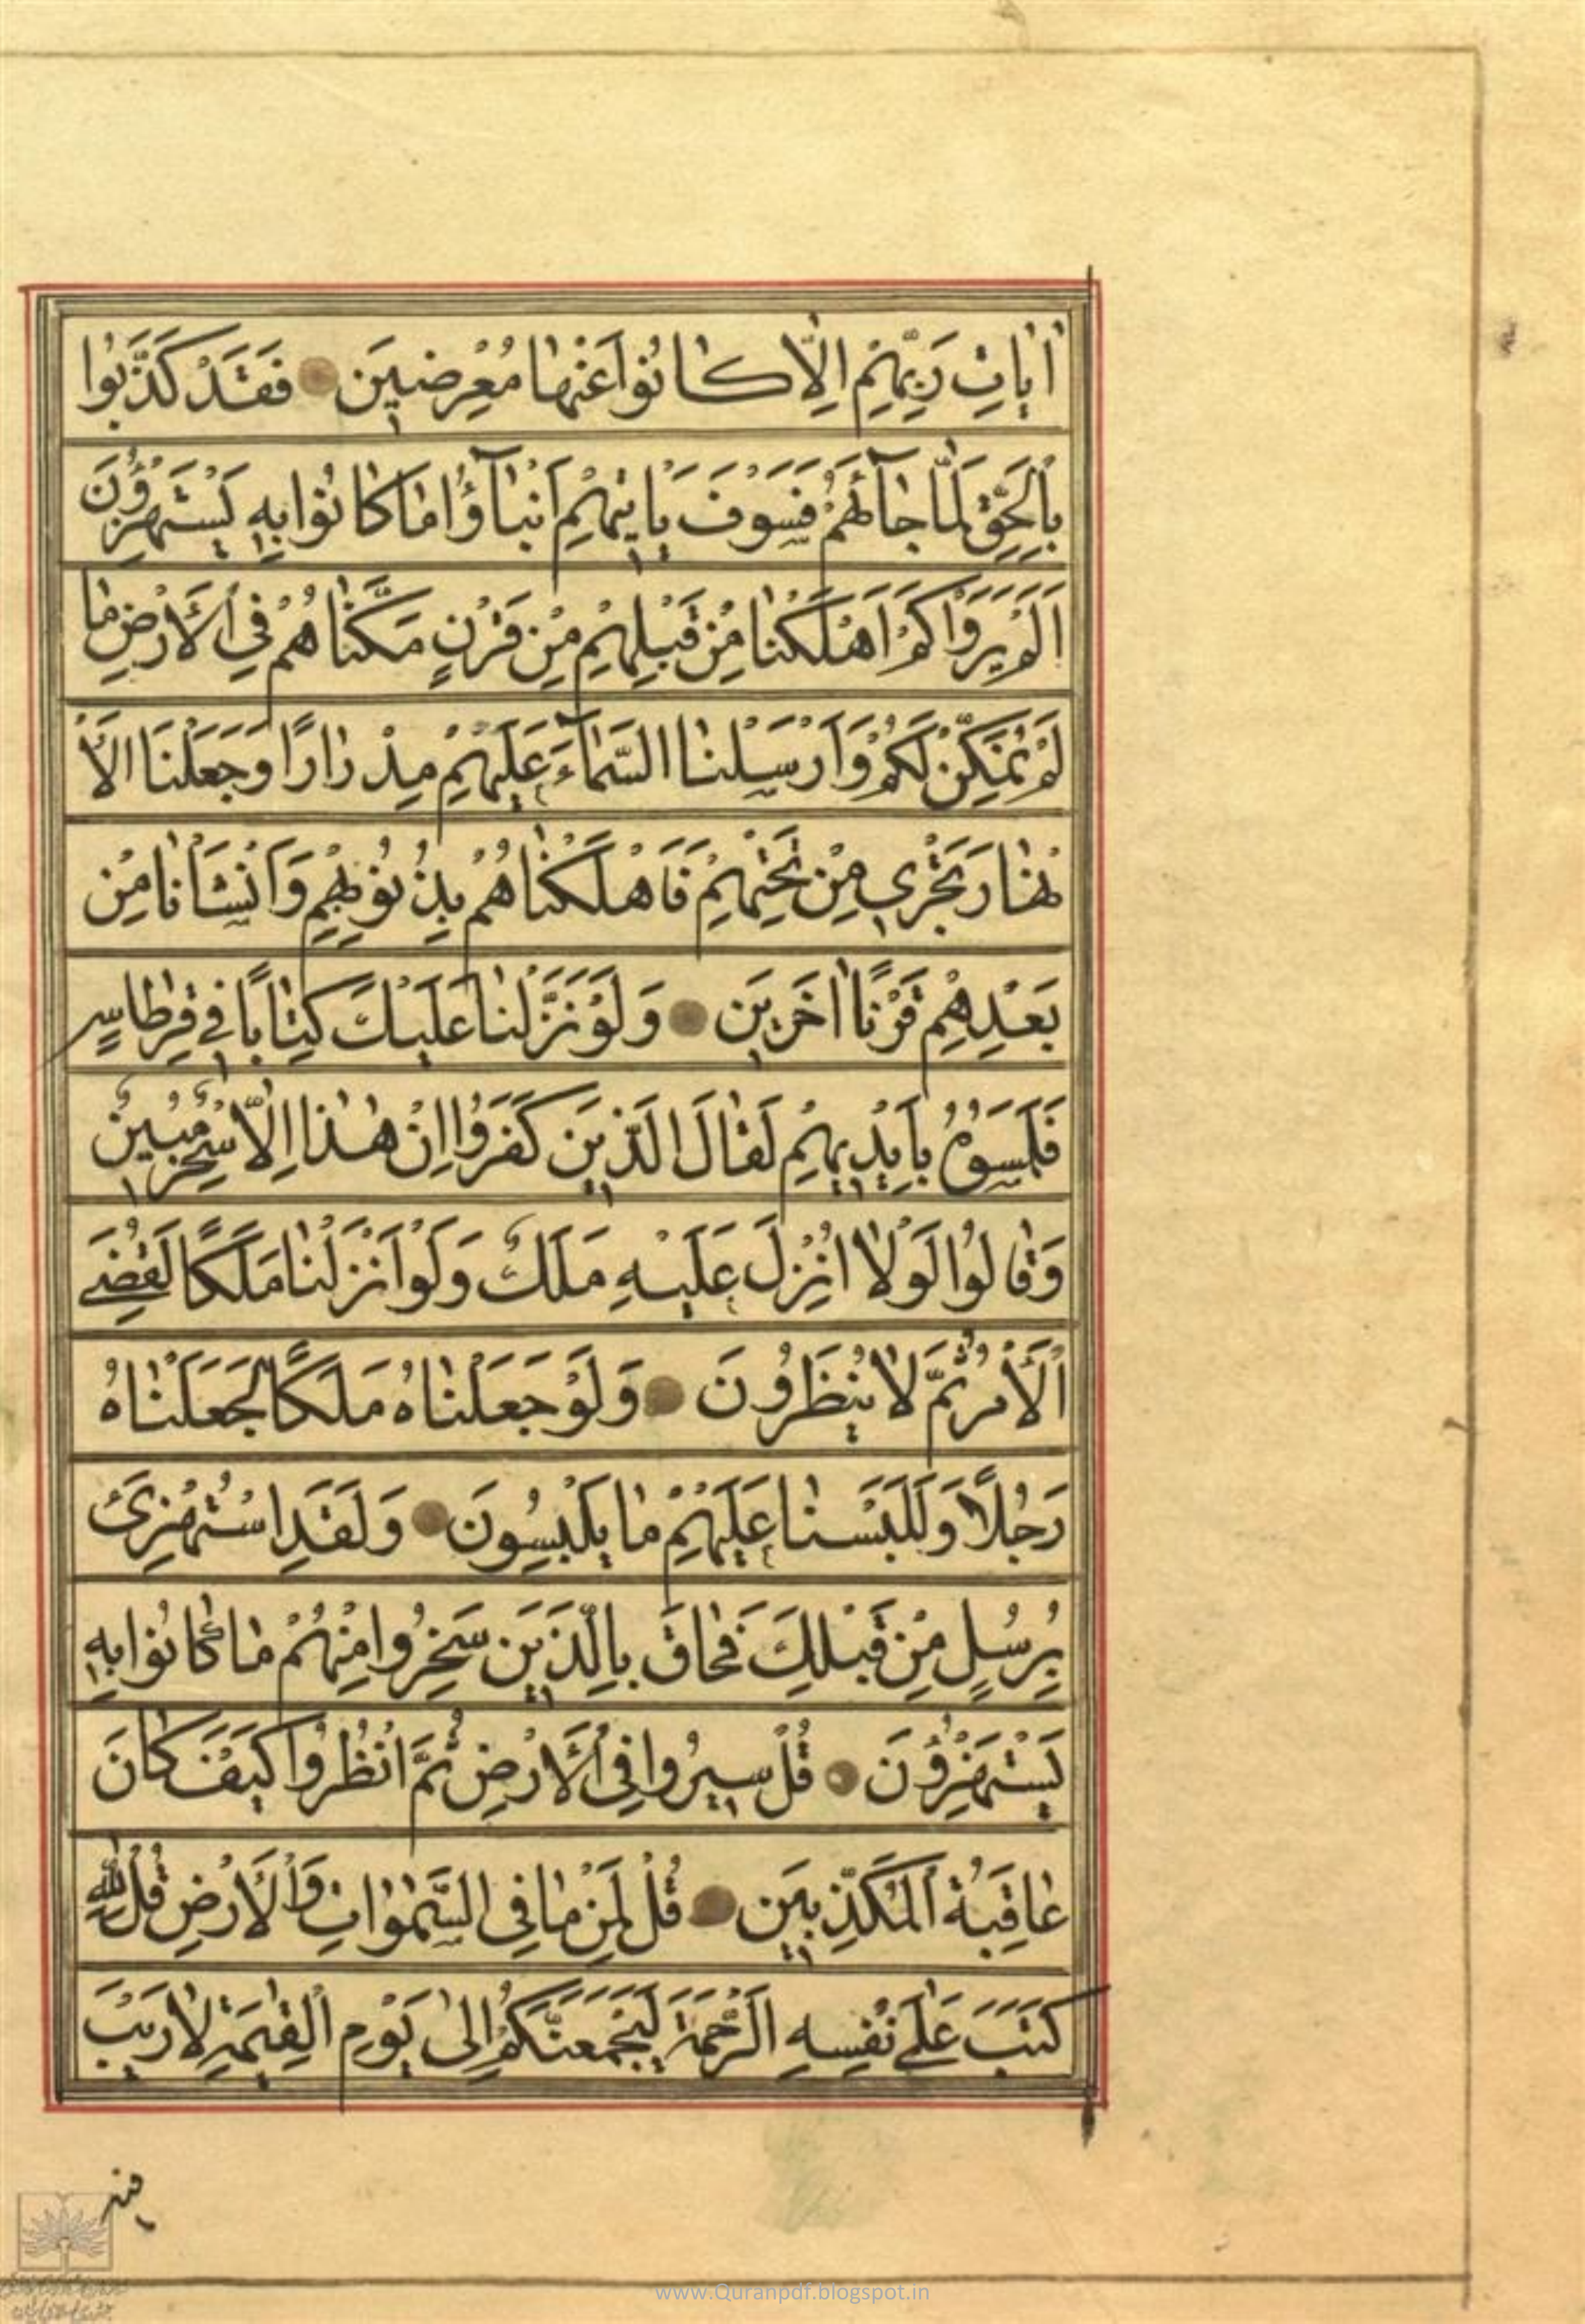 اٰيٰاتِ رَبِّهِمْ اِلّٰا كٰانُوا عَنْهٰا مُعْرِضينَ فَقَدْ كَذَّبُوا
بِالْحَقِّ لَمّٰا جٰآئَهُمْ فَسَوْفَ يَاْتيهِمْ اَنْبٰآؤُا مٰا كٰانُوا بِهِ يَسْتَهْزِؤُنَ
اَلَمْ يَرَوْا كَمْ اَهْلَكْنٰا مِنْ قَبْلِهِمْ مِنْ قَرْنٍ مَكَّنّٰاهُمْ فِي الْاَرْضِ مٰا
لَمْ نُمَكِّنْ لَكُمْ وَاَرْسَلْنَا السَّمٰآءَ عَلَيْهِمْ مِدْرٰارًا وَجَعَلْنَا الْاَ
نْهٰارَ تَجْري مِنْ تَحْتِهِمْ فَاَهْلَكْنٰاهُمْ بِذُنُوبِهِمْ وَاَنْشَاْنٰا مِنْ
بَعْدِهِمْ قَرْنًا اٰخَرينَ وَلَوْ نَزَّلْنٰا عَلَيْكَ كِتٰابًا في قِرْطٰاسٍ
فَلَمَسُوهُ بِاَيْديهِمْ لَقٰالَ الَّذينَ كَفَرُوا اِنْ هٰذٰا اِلّٰا سِحْرٌ مُبينٌ
وَقٰالُوا لَوْلٰا اُنْزِلَ عَلَيْهِ مَلَكٌ وَلَوْ اَنْزَلْنٰا مَلَكًا لَقُضِيَ
الْاَمْرُ ثُمَّ لٰا يُنْظَرُونَ وَلَوْ جَعَلْنٰاهُ مَلَكًا لَجَعَلْنٰاهُ
رَجُلًا وَلَلَبَسْنٰا عَلَيْهِمْ مٰا يَلْبِسُونَ وَلَقَدِ اسْتُهْزِئَ
بِرُسُلٍ مِنْ قَبْلِكَ فَحٰاقَ بِالَّذينَ سَخِرُوا مِنْهُمْ مٰا كٰانُوا بِهِ
يَسْتَهْزِؤُنَ قُلْ سيرُوا فِي الْاَرْضِ ثُمَّ انْظُرُوا كَيْفَ كٰانَ
عٰاقِبَةُ الْمُكَذِّبينَ قُلْ لِمَنْ مٰا فِي السَّمٰوٰاتِ وَالْاَرْضِ قُلْ لِلّٰهِ
كَتَبَ عَلٰى نَفْسِهِ الرَّحْمَةَ لَيَجْمَعَنَّكُمْ اِلىٰ يَوْمِ الْقِيٰمَةِ لٰا رَيْبَ
فيه
www.Quranpdf.blogspot.in